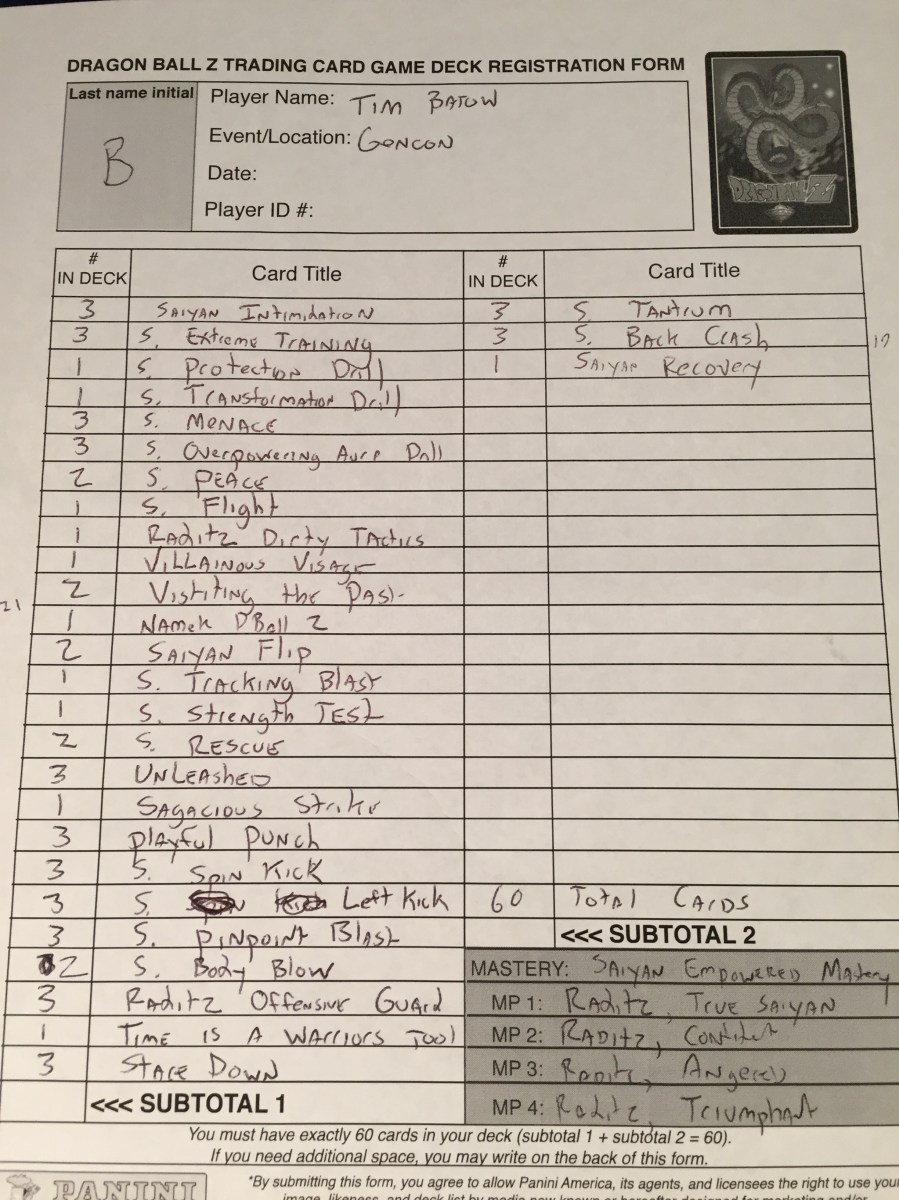 DRAGON BALL Z TRADING CARD GAME DECK REGISTRATION FORM
Last name initial
B
Player Name: TIM BATOW
Event/Location: GENCON
Date:
Player ID #:
DRAGON BALL Z
# IN DECK Card Title # IN DECK Card Title
3 SAIYAN INTIMIDATION 3 S. TANTRUM
3 S. EXTREME TRAINING 3 S. BACK CRASH 17
1 S. Protection Drill 1 SAIYAN Recovery
1 S. Transformation Drill
3 S. MENACE
3 S. Overpowering Aura Drill
2 S. PEACE
1 S. Flight
1 RADITZ DIRTY TACTICS
1 VILLAINOUS VISAGE
21 2 Vistiting the PAST
1 NAMEK D'Ball 2
2 SAIYAN Flip
1 S. TRACKING BLAST
1 S. Strength TEST
2 S. RESCUE
3 UNLEASHED
1 SAGACIOUS Strike
3 Playful PUNCH
3 S. SPIN KICK
3 S. Left Kick 60 TOTAL CARDS
3 S. PINPOINT BLAST <<< SUBTOTAL 2
2 S. Body Blow MASTERY: SAIYAN EMPOWERED Mastery
3 RADITZ OFFENSIVE GUARD MP 1: RADITZ, TRUE SAIYAN
1 TIME IS A WARRIORS TOOL MP 2: RADITZ,
3 STARE DOWN MP 3: Raditz, Angered
<<< SUBTOTAL 1 MP 4: Raditz, Triumphant
You must have exactly 60 cards in your deck (subtotal 1 + subtotal 2 = 60).
If you need additional space, you may write on the back of this form.
PANINI
*By submitting this form, you agree to allow Panini America, its agents, and licensees the right to use your
image, likeness, and deck list by media now known or hereafter